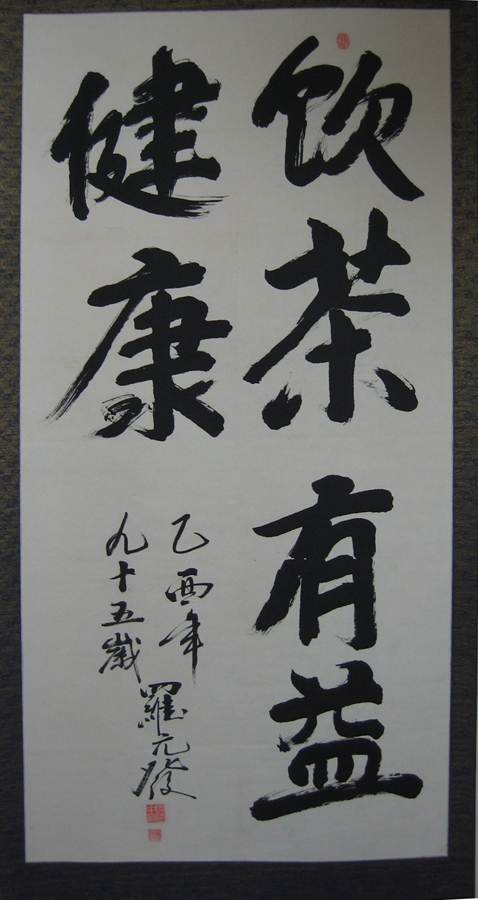 饮茶有益
健康
乙酉年
九十五歲
羅元發